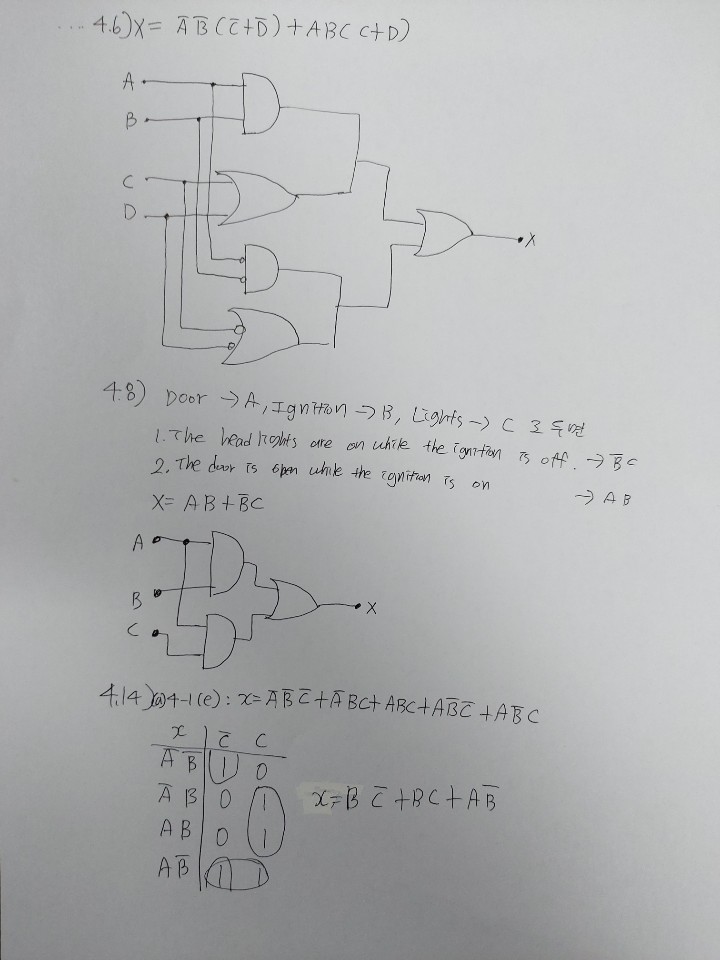 .... 4.6) X = A̅ B̅ (C̅+D̅) + A B C C+D)
A
B
C
D
X
4.8) Door → A, Ignition → B, Lights → C 로 두면
1. The head lights are on while the ignition is off. → B̅ C
2. The door is open while the ignition is on → A B
X = A B + B̅ C
A
B
C
X
4.14) (a) 4-1(e) : x = A̅ B̅ C̅ + A̅ B C + A B C + A B̅ C̅ + A B̅ C
x C̅ C
A̅ B̅ 1 0
A̅ B 0 1
x = B C̅ + B C + A B̅
A B 0 1
A B̅ 1 1